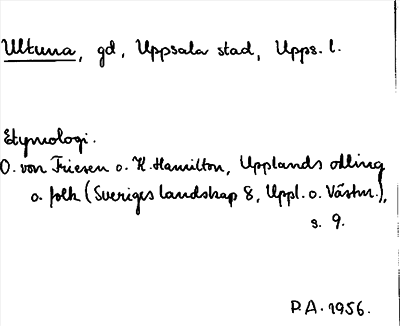 Ultuna, gd, Uppsala stad, Upps. l.
Etymologi.
O. von Friesen o. H. Hamilton, Upplands odling
o. folk (Sveriges landskap 8, Uppl. o. Västm.),
s. 9.
P.A. 1956.